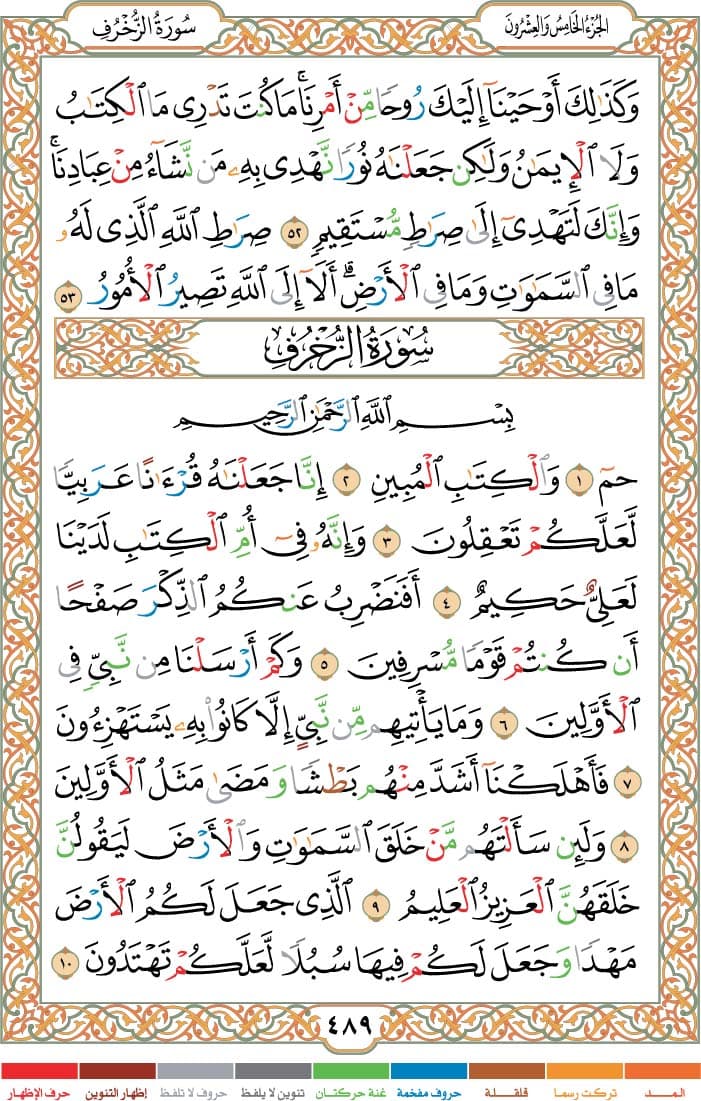 الجُزْءُ الخَامِسُ وَالعِشْرُونَ
سُورَةُ الزُّخْرُفِ
وَكَذَٰلِكَ أَوْحَيْنَآ إِلَيْكَ رُوحًا مِّنْ أَمْرِنَا ۚ مَا كُنتَ تَدْرِى مَا ٱلْكِتَٰبُ
وَلَا ٱلْإِيمَٰنُ وَلَٰكِن جَعَلْنَٰهُ نُورًا نَّهْدِى بِهِۦ مَن نَّشَآءُ مِنْ عِبَادِنَا ۚ
وَإِنَّكَ لَتَهْدِىٓ إِلَىٰ صِرَٰطٍ مُّسْتَقِيمٍ ٥٢ صِرَٰطِ ٱللَّهِ ٱلَّذِى لَهُۥ
مَا فِى ٱلسَّمَٰوَٰتِ وَمَا فِى ٱلْأَرْضِ ۗ أَلَآ إِلَى ٱللَّهِ تَصِيرُ ٱلْأُمُورُ ٥٣
سُورَةُ الزُّخْرُفِ
بِسْمِ ٱللَّهِ ٱلرَّحْمَٰنِ ٱلرَّحِيمِ
حمٓ ١ وَٱلْكِتَٰبِ ٱلْمُبِينِ ٢ إِنَّا جَعَلْنَٰهُ قُرْءَٰنًا عَرَبِيًّا
لَّعَلَّكُمْ تَعْقِلُونَ ٣ وَإِنَّهُۥ فِىٓ أُمِّ ٱلْكِتَٰبِ لَدَيْنَا
لَعَلِىٌّ حَكِيمٌ ٤ أَفَنَضْرِبُ عَنكُمُ ٱلذِّكْرَ صَفْحًا
أَن كُنتُمْ قَوْمًا مُّسْرِفِينَ ٥ وَكَمْ أَرْسَلْنَا مِن نَّبِىٍّ فِى
ٱلْأَوَّلِينَ ٦ وَمَا يَأْتِيهِم مِّن نَّبِىٍّ إِلَّا كَانُوا۟ بِهِۦ يَسْتَهْزِءُونَ
٧ فَأَهْلَكْنَآ أَشَدَّ مِنْهُم بَطْشًا وَمَضَىٰ مَثَلُ ٱلْأَوَّلِينَ
٨ وَلَئِن سَأَلْتَهُم مَّنْ خَلَقَ ٱلسَّمَٰوَٰتِ وَٱلْأَرْضَ لَيَقُولُنَّ
خَلَقَهُنَّ ٱلْعَزِيزُ ٱلْعَلِيمُ ٩ ٱلَّذِى جَعَلَ لَكُمُ ٱلْأَرْضَ
مَهْدًا وَجَعَلَ لَكُمْ فِيهَا سُبُلًا لَّعَلَّكُمْ تَهْتَدُونَ ١٠
٤٨٩
المـــد تركت رسما قلقـلـة حروف مفخمة غنة حركتان تنوين لا يلفظ حروف لا تلفظ إظهار التنوين حرف الإظهار